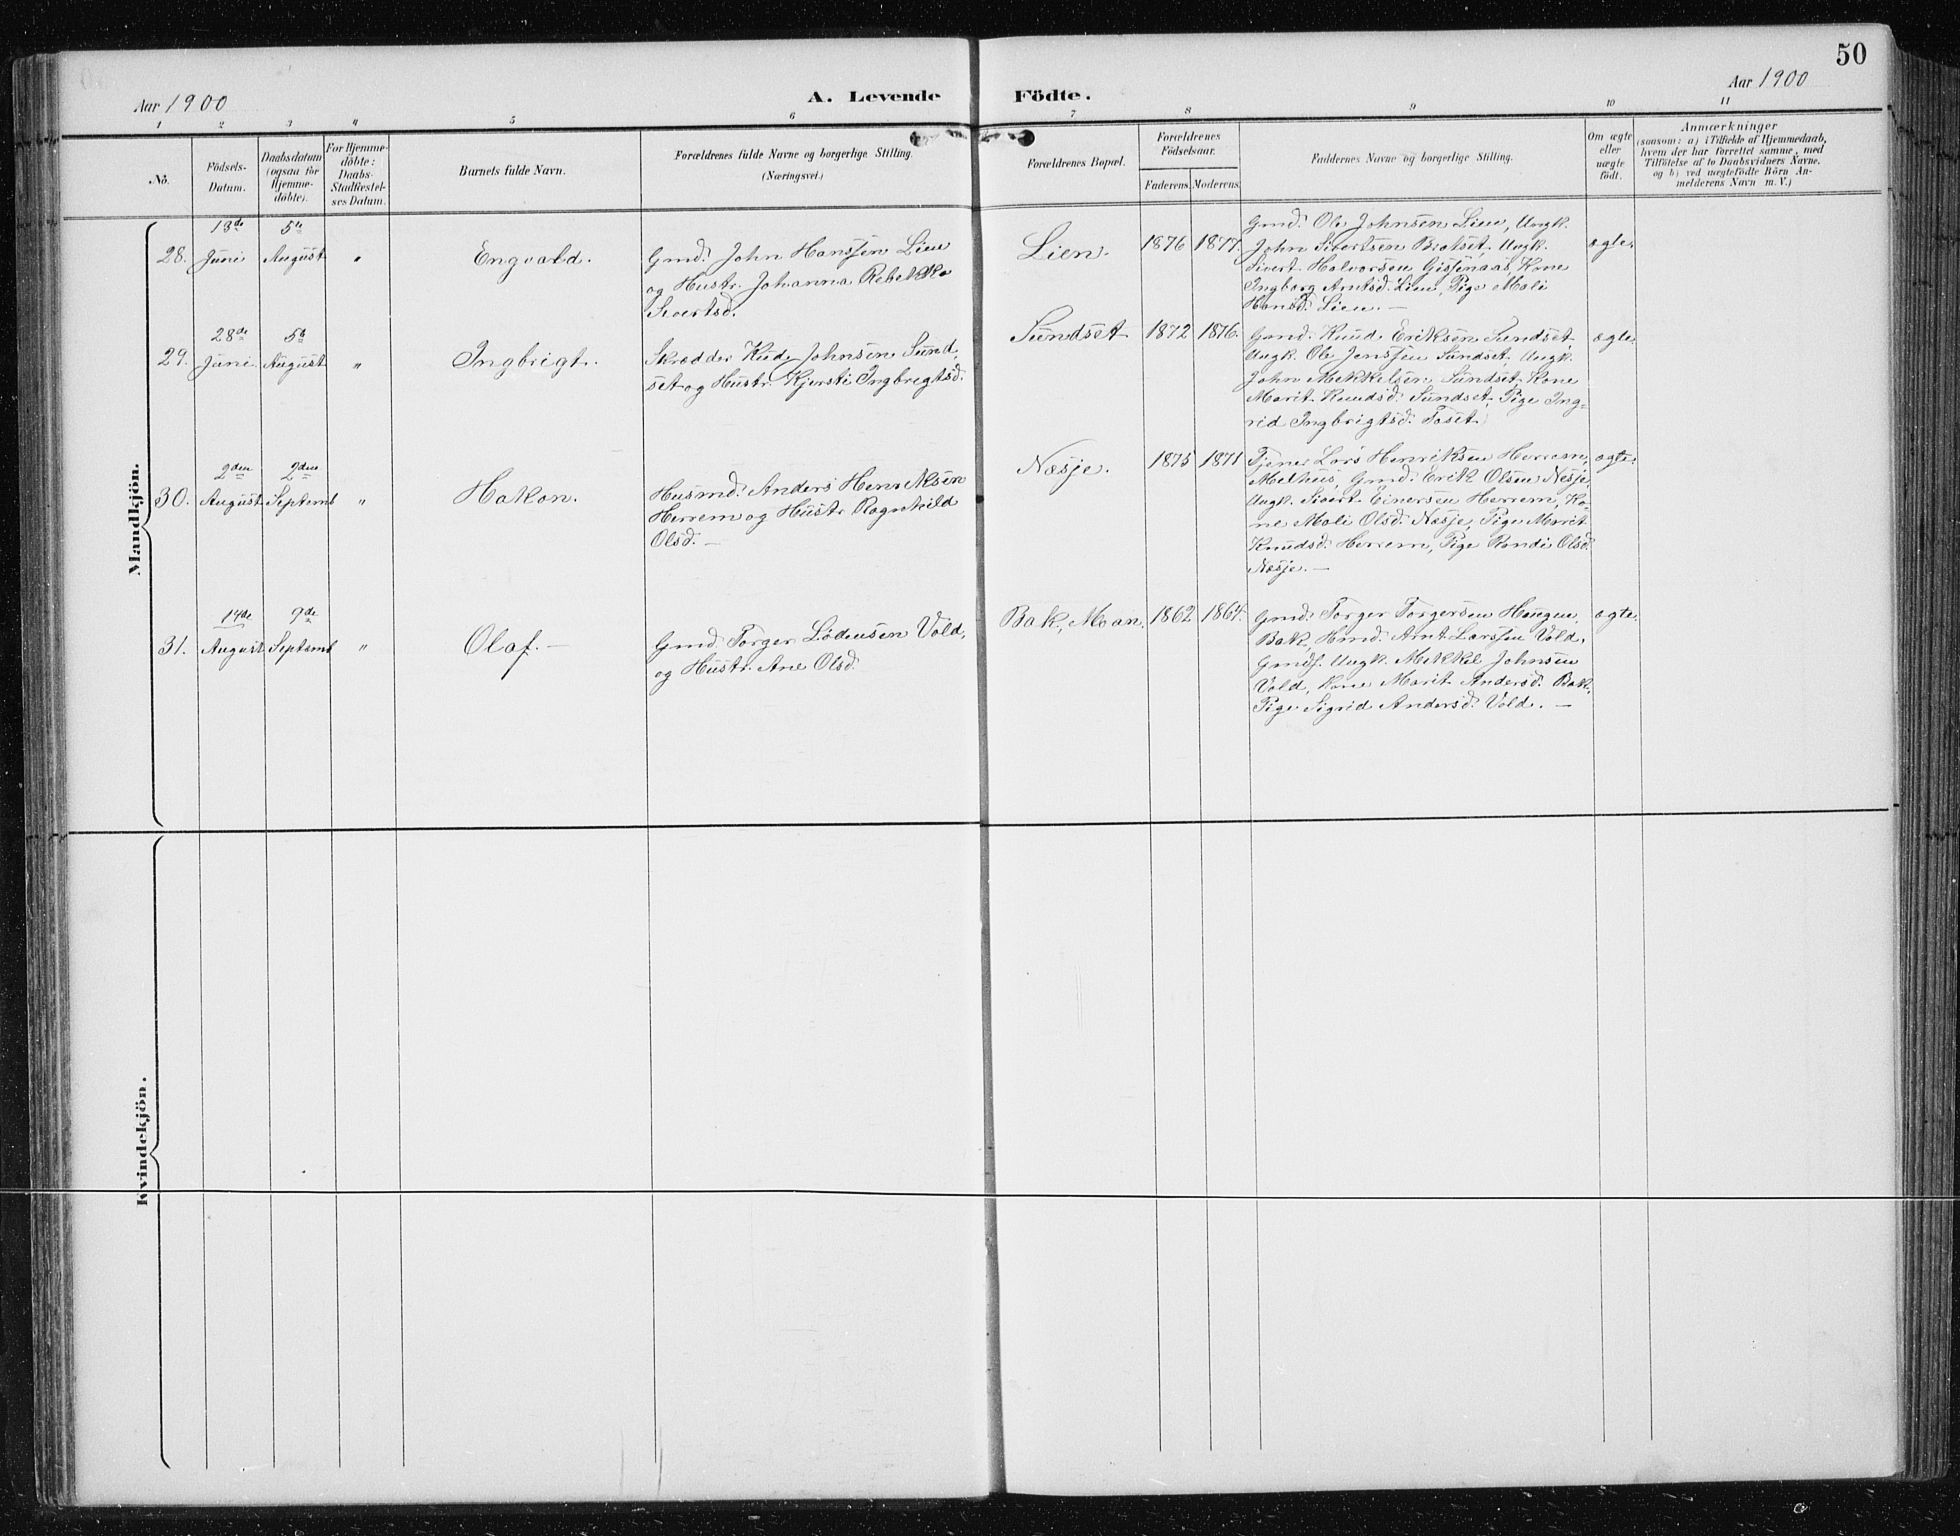 50
Aar 1900
A. Levende
Födte.
Aar 1900
1 2 3 4 5 6 7 8 9 10 11
No.
Födsels-
Datum.
Daabsdatum
(ogsaa for
Hjemme-
döbte).
For Hjemme-
döbte:
Daabs-
Stadfæstel-
ses Datum.
Barnets fulde Navn.
Forældrenes fulde Navne og borgerlige Stilling.
(Næringsvei.)
Forældrenes Bopæl.
Forældrenes
Födselsaar.
Faderens. Moderens.
Faddernes Navne og borgerlige Stilling.
Om ægte
eller
uægte
födt.
Anmærkninger
(saasom: a) i Tilfælde af Hjemmedaab,
hvem der har forrettet samme, med
Tilföielse af to Daabsvidners Navne.
og b) ved uægtefödte Börn An-
melderens Navn m. V.)
Mandkjön.
28. 18de Juni 5te August " Engvald.
Gmd. John Hanssen Lien
og Hustr. Johanna Rebekka
Sivertsd.
Lien. 1876 1877.
Gmd. Ole Johnsen Lien, Ungk.
John Sivertsen Bratset, Ungk.
Sivert Halvorsen Gisfinaas, Kone
Ingborg Arntsd. Lien, Pige Mali
Hansd. Lien. —
ægte.
29. 28de Juni 5te August " Ingbrigt.
Skrædder Knud Johnsen Sund-
set og Hustr. Kjersti Ingbrigtsd.
Sundset 1872 1876.
Gmd. Knud Eriksen Sundset,
Ungk. Ole Jenssen Sundset, Ungk.
John Mekkelsen Sundset, Kone
Marit Knudsd. Sundset, Pige Ing-
rid Ingbrigtsd. Foset.
ægte
30. 2den August 2den Septemb " Hakon.
Husmd. Anders Henriksen
Herrem og Hustr. Ragnhild
Olsd. —
Næsje. 1875 1871
Tjener Lars Henriksen Herrem,
Melhus, Gmd. Erik Olsen Nesje,
Ungk. Sivert Einersen Herrem, Ko-
ne Mali Olsd. Næsje, Pige Marit
Knudsd. Herrem, Pige Randi Olsd.
Næsje. —
ægte.
31. 14de August 9de Septemb " Olaf. —
Gmd. Torger Lödensen Vold,
og Hustr. Ane Olsd.
Bak, Moan. 1862 1864.
Gmd. Torger Torgersen Haugen,
Bak, Hmd. Arnt Larssen Vold,
Gmdf. Ungk. Mekkel Johnsen
Vold, Kone Marit Andersd. Bak,
Pige Sigrid Andersd. Vold. —
ægte.
Kvindekjön.